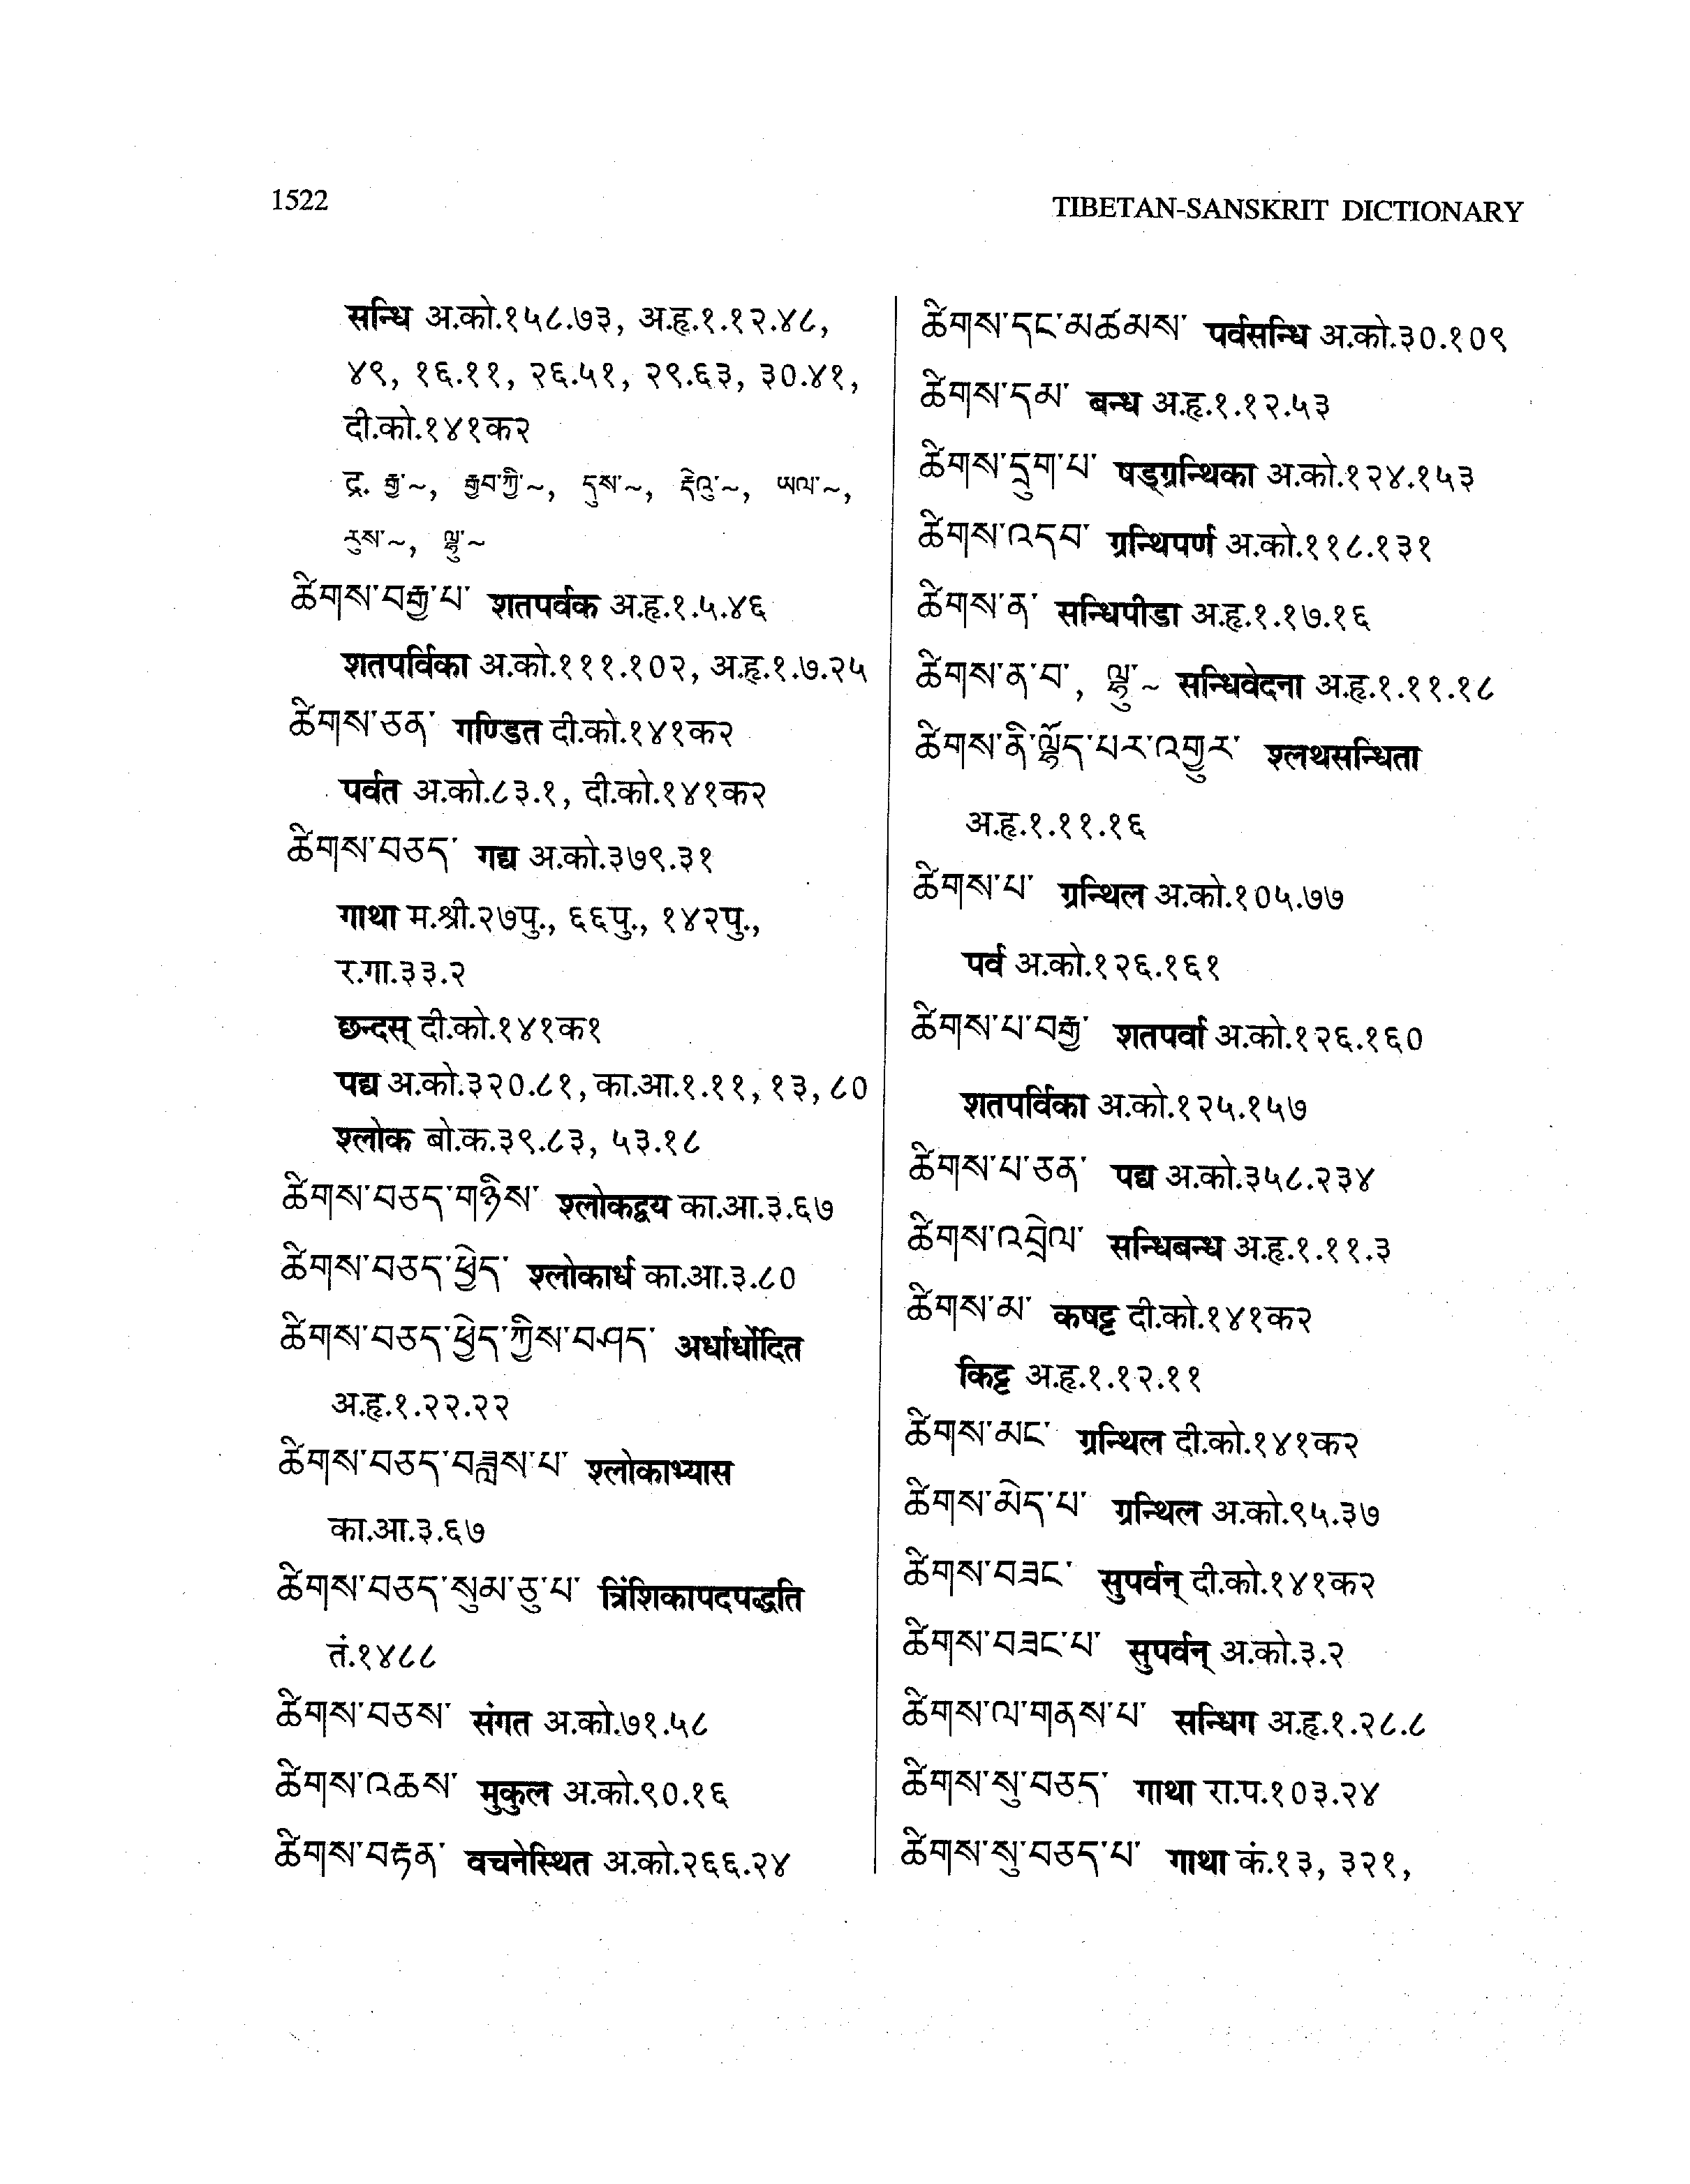 1522
TIBETAN-SANSKRIT DICTIONARY
सन्धि अ.को.१५८.७३, अ.हृ.१.१२.४८,
४९, १६.११, २६.५१, २९.६३, ३०.४१,
दी.को.१४१क२
द्र. རྒྱ་~, རྒྱབ་ཀྱི་~, དུས་~, རྡེའུ་~, ཡལ་~,
རུས་~, ལྷུ་~
ཚིགས་བརྒྱ་པ་ शतपर्वक अ.हृ.१.५.४६
शतपर्विका अ.को.१११.१०२, अ.हृ.१.७.२५
ཚིགས་ཅན་ गण्डित दी.को.१४१क२
पर्वत अ.को.८३.१, दी.को.१४१क२
ཚིགས་བཅད་ गद्य अ.को.३७९.३१
गाथा म.श्री.२७पु., ६६पु., १४२पु.,
र.गा.३३.२
छन्दस् दी.को.१४१क१
पद्य अ.को.३२०.८१, का.आ.१.११, १३, ८०
श्लोक बो.क.३९.८३, ५३.१८
ཚིགས་བཅད་གཉིས་ श्लोकद्वय का.आ.३.६७
ཚིགས་བཅད་ཕྱེད་ श्लोकार्ध का.आ.३.८०
ཚིགས་བཅད་ཕྱེད་ཀྱིས་བཤད་ अर्धार्धोदित
अ.हृ.१.२२.२२
ཚིགས་བཅད་བཟླས་པ་ श्लोकाभ्यास
का.आ.३.६७
ཚིགས་བཅད་སུམ་ཅུ་པ་ त्रिंशिकापदपद्धति
तं.१४८८
ཚིགས་བཅས་ संगत अ.को.७१.५८
ཚིགས་འཆས་ मुकुल अ.को.९०.१६
ཚིགས་བརྟན་ वचनेस्थित अ.को.२६६.२४
ཚིགས་དང་མཚམས་ पर्वसन्धि अ.को.३०.१०९
ཚིགས་དམ་ बन्ध अ.हृ.१.१२.५३
ཚིགས་དྲུག་པ་ षड्ग्रन्थिका अ.को.१२४.१५३
ཚིགས་འདབ་ ग्रन्थिपर्ण अ.को.११८.१३१
ཚིགས་ན་ सन्धिपीडा अ.हृ.१.१७.१६
ཚིགས་ན་བ་, ལྷུ་~ सन्धिवेदना अ.हृ.१.११.१८
ཚིགས་ནི་ལྷོད་པར་འགྱུར་ श्लथसन्धिता
अ.हृ.१.११.१६
ཚིགས་པ་ ग्रन्थिल अ.को.१०५.७७
पर्व अ.को.१२६.१६१
ཚིགས་པ་བརྒྱ་ शतपर्वा अ.को.१२६.१६०
शतपर्विका अ.को.१२५.१५७
ཚིགས་པ་ཅན་ पद्य अ.को.३५८.२३४
ཚིགས་འབྲེལ་ सन्धिबन्ध अ.हृ.१.११.३
ཚིགས་མ་ कषट्ट दी.को.१४१क२
किट्ट अ.हृ.१.१२.११
ཚིགས་མང་ ग्रन्थिल दी.को.१४१क२
ཚིགས་མེད་པ་ ग्रन्थिल अ.को.९५.३७
ཚིགས་བཟང་ सुपर्वन् दी.को.१४१क२
ཚིགས་བཟང་པ་ सुपर्वन् अ.को.३.२
ཚིགས་ལ་གནས་པ་ सन्धिग अ.हृ.१.२८.८
ཚིགས་སུ་བཅད་ गाथा रा.प.१०३.२४
ཚིགས་སུ་བཅད་པ་ गाथा कं.१३, ३२१,